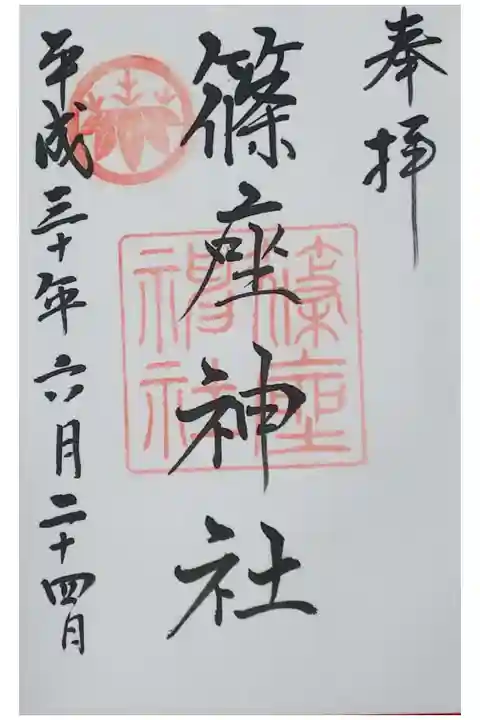 奉拝
篠座神社
篠座
神社
平成三十年六月二十四日